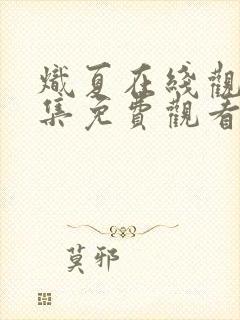 熾夏在綫觀
集免費觀看
莫邪